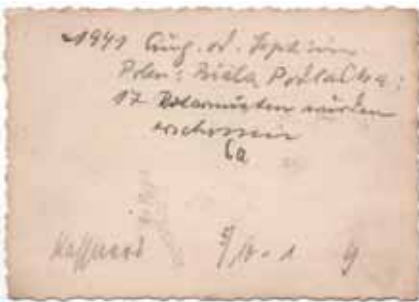 1941 Aug. od. Sept. in
Polen: Biala Podlaska:
17 Rotarmisten wurden
erschossen
6a